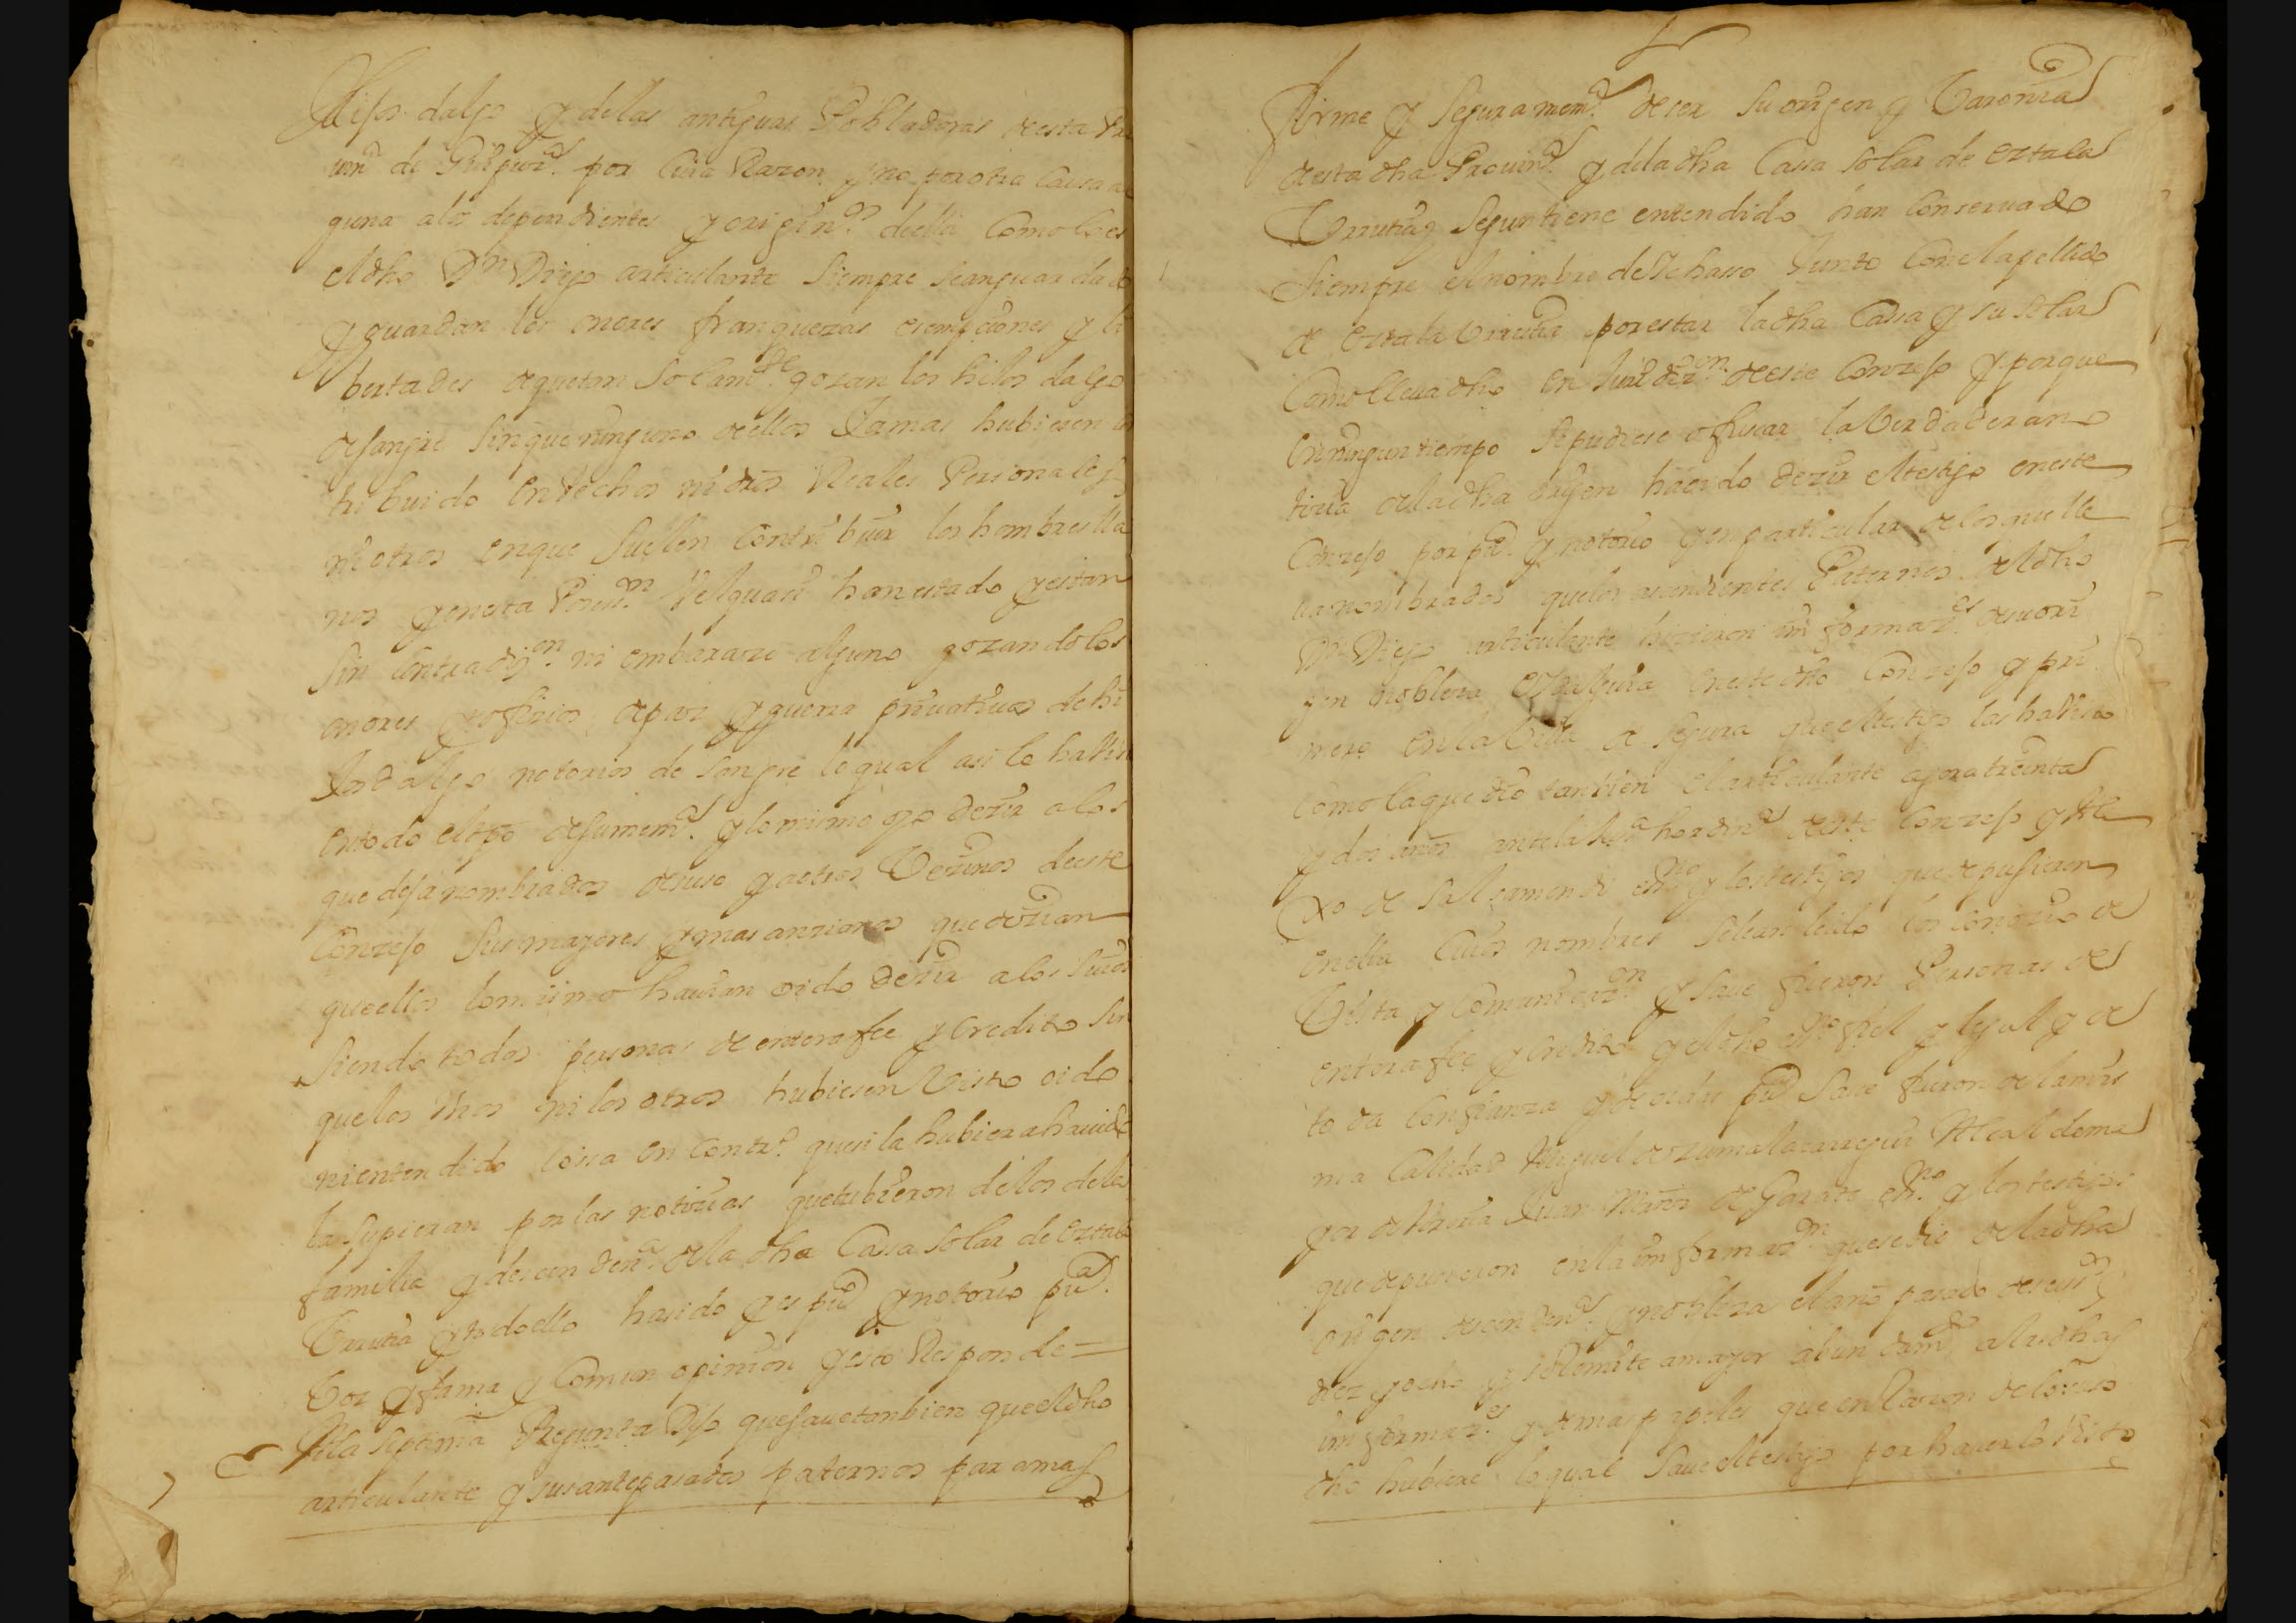 Hijos dalgo y delas antiguas Pobladoras desta Pro
uinª de Guipuzª. por Cuia Razon y no por otra Causa al
guna alos dependientes y origin.os della Como lo es
eldho Dn Diego articulante Siempre Sean guardado
y guardan los onores franquezas esempciones y li
bertades de que tan Solamte gozan los hijos dalgo
de sangre Sin que ninguno de ellos Jamas hubiesen con
tribuido en Pechos ni dros Reales Personales
ni otros en que Suelen Contribuir los hombres lla
nos y en esta Poses.on Vel quasi han estado y estan
Sin Contradiz.on ni embarazo alguno gozando los
onores y ofizios de paz y guerra priuatiuos de hi
Jos dalgo notorios de Sangre lo qual asi lo ha Visto
en todo el tpo de su memª. y lo mismo oyo dezir a los
que deja nombrados de suso y a otros Vezinos deeste
Conzejo Sus mayores y mas anzianos que dezian
que ellos lo mismo hauian oido dezir a los Suios
Siendo todos personas de entera fee y Credito Sin
que los Vnos ni los otros hubiesen Visto oido
ni entendido Cossa en Contr.º que si la hubiera hauido
la Supieran por las notizias que tubieron de los de la
familia y desCendenª. de la dha Cassa Solar de Oztala
Vrrutia y todo ello ha sido y es pu.co y notorio pu.ca
Voz y fama y Comun opinion y esto Responde=
A la Septima Pregunta Dijo que saue tanbien que el dho
articulante y sus antepasados paternos para mas
Firme y Segura memª. de ser Su origen y Varonia
de esta dha Prouinª. y de la dha Cassa Solar de Oztala
Vrrutia Segun tiene entendido han Conseruado
Siempre el nombre de Echasso Junto Con el apellido
de Oztala Vrrutia por estar la dha Cassa y su Solar
Como lleua dho en Jurisdiz.on de este Conzejo y porque
en ningun tiempo Se pudiese ofuscar la Verdadera no
tizia de la dha origen ha oido dezir el testigo en este
Conzejo por pu.co y notorio y en particular de los que lle
ua nombrados que los asendientes Paternos del dho
Dn Diego articulante hizieron informaz.es de su ori
gen nobleza y Idalguia en este dho Conzejo y pri
mero en la Villa de Segura que el testigo las ha Visto
Como la que dio tanbien el articulante agora treinta
y dos años ante la Justª hordinª de este Conzejo y
de Salsamendi esno y los testigos que depusieron
en ella Cuios nombres Se le an leido los Conozio de
Vista y Comunicaz.on y Saue fueron Personas de
entera fee y Credito y el dho esno fiel y legal y de
toda Confianza y de ella pu.co Saue fueron de la mis
ma Calidad Miguel de Zumalacarregui Alcalde ma
yor de Areria Juan Mrnz de Garate esno y los testigos
que depusieron en la informaz.on que se dio de la dha
origen desCendenª. y nobleza el año pasado de seisz.os
diez y ocho y se Remite a mayor abundamto a las dhas
informaz.es y demas papeles que en Razon de lo suso
dho hubiere lo qual Saue el testigo por hauerlo Visto